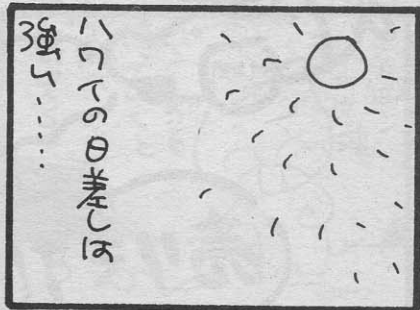 ハワイの日差しは
強い・・・・・